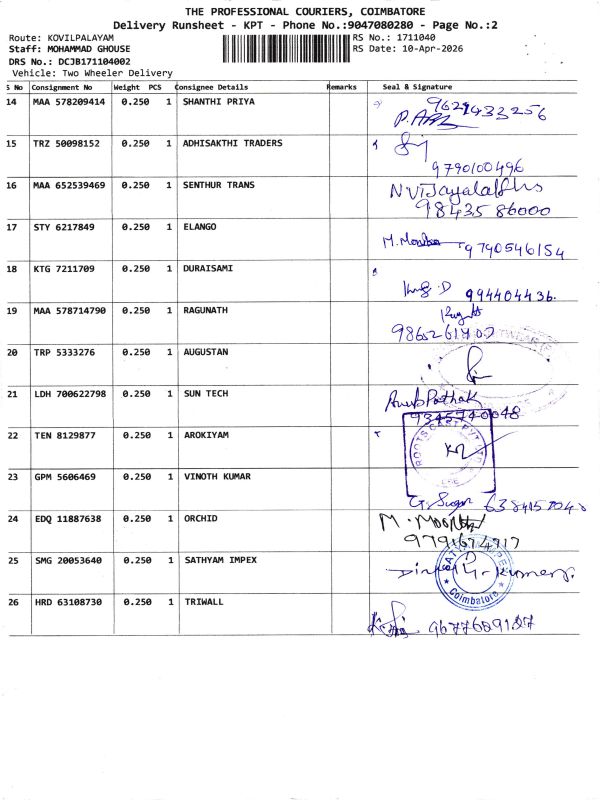 THE PROFESSIONAL COURIERS, COIMBATORE
Delivery Runsheet - KPT - Phone No.:9047080280 - Page No.:2
Route: KOVILPALAYAM RS No.: 1711040
Staff: MOHAMMAD GHOUSE RS Date: 10-Apr-2026
DRS No.: DCJB171104002
Vehicle: Two Wheeler Delivery
S No Consignment No Weight PCS Consignee Details Remarks Seal & Signature
14 MAA 578209414 0.250 1 SHANTHI PRIYA
15 TRZ 50098152 0.250 1 ADHISAKTHI TRADERS
9790100496
16 MAA 652539469 0.250 1 SENTHUR TRANS
98435 86000
17 STY 6217849 0.250 1 ELANGO 9790546154
18 KTG 7211709 0.250 1 DURAISAMI
994404436.
19 MAA 578714790 0.250 1 RAGUNATH
20 TRP 5333276 0.250 1 AUGUSTAN
21 LDH 700622798 0.250 1 SUN TECH
9345740048
22 TEN 8129877 0.250 1 AROKIYAM
23 GPM 5606469 0.250 1 VINOTH KUMAR
24 EDQ 11887638 0.250 1 ORCHID
25 SMG 20053640 0.250 1 SATHYAM IMPEX
Coimbatore
26 HRD 63108730 0.250 1 TRIWALL